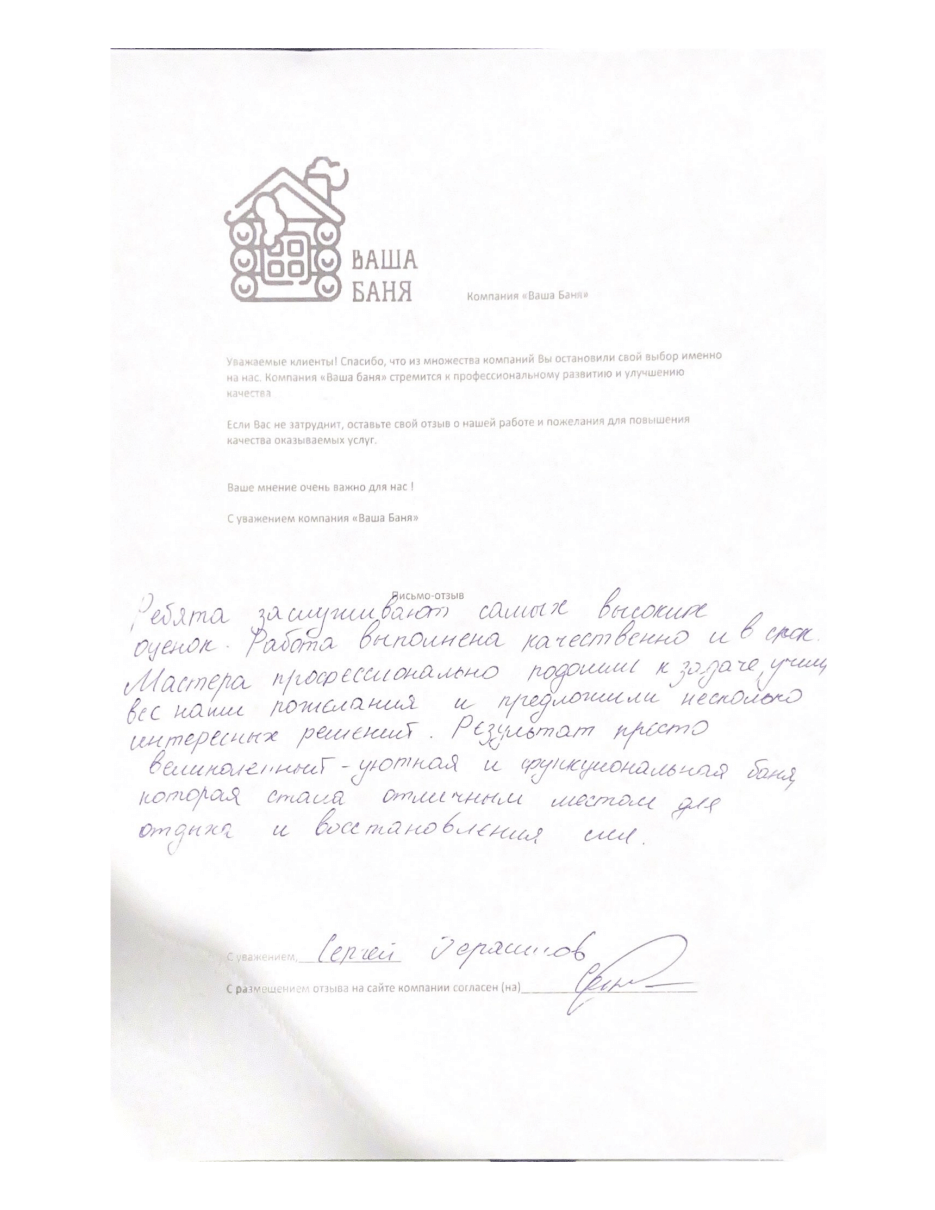 ВАША
БАНЯ
Компания «Ваша Баня»
Уважаемые клиенты! Спасибо, что из множества компаний Вы остановили свой выбор именно
на нас. Компания «Ваша баня» стремится к профессиональному развитию и улучшению
качества
Если Вас не затруднит, оставьте свой отзыв о нашей работе и пожелания для повышения
качества оказываемых услуг.
Ваше мнение очень важно для нас !
С уважением компания «Ваша Баня»
Письмо-отзыв
Ребята заслуживают самых высоких
оценок. Работа выполнена качественно и в срок.
Мастера профессионально подошли к задаче, учли
все наши пожелания и предложили несколько
интересных решений. Результат просто
великолепный - уютная и функциональная баня,
которая стала отличным местом для
отдыха и восстановления сил.
С уважением, Сергей
С размещением отзыва на сайте компании согласен (на)